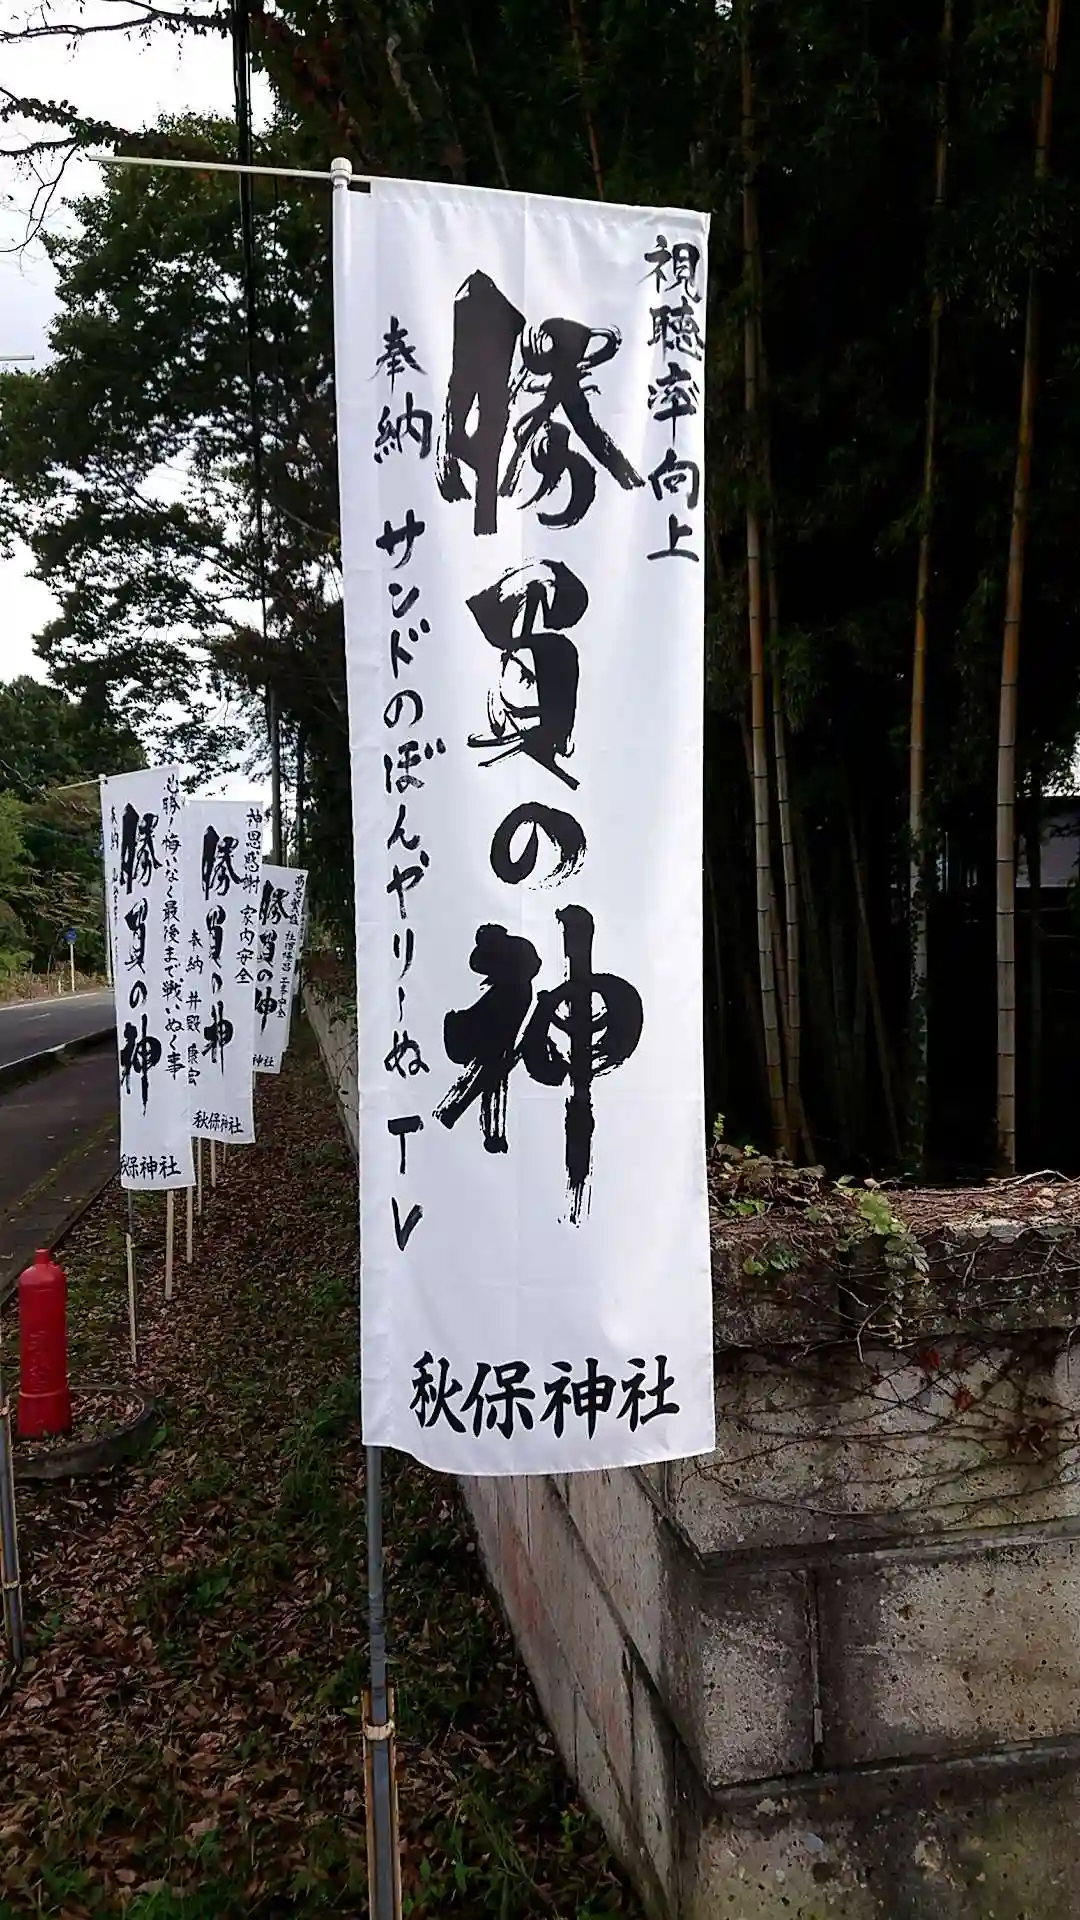 視聴率向上
勝負の神
奉納 サンドのぼんやり～ぬTV
秋保神社
必勝！悔いなく最後まで戦いぬく事
勝負の神
奉納
秋保神社
神恩感謝 家内安全
勝負の神
奉納 井殿 康宏
秋保神社
勝負の神
神社